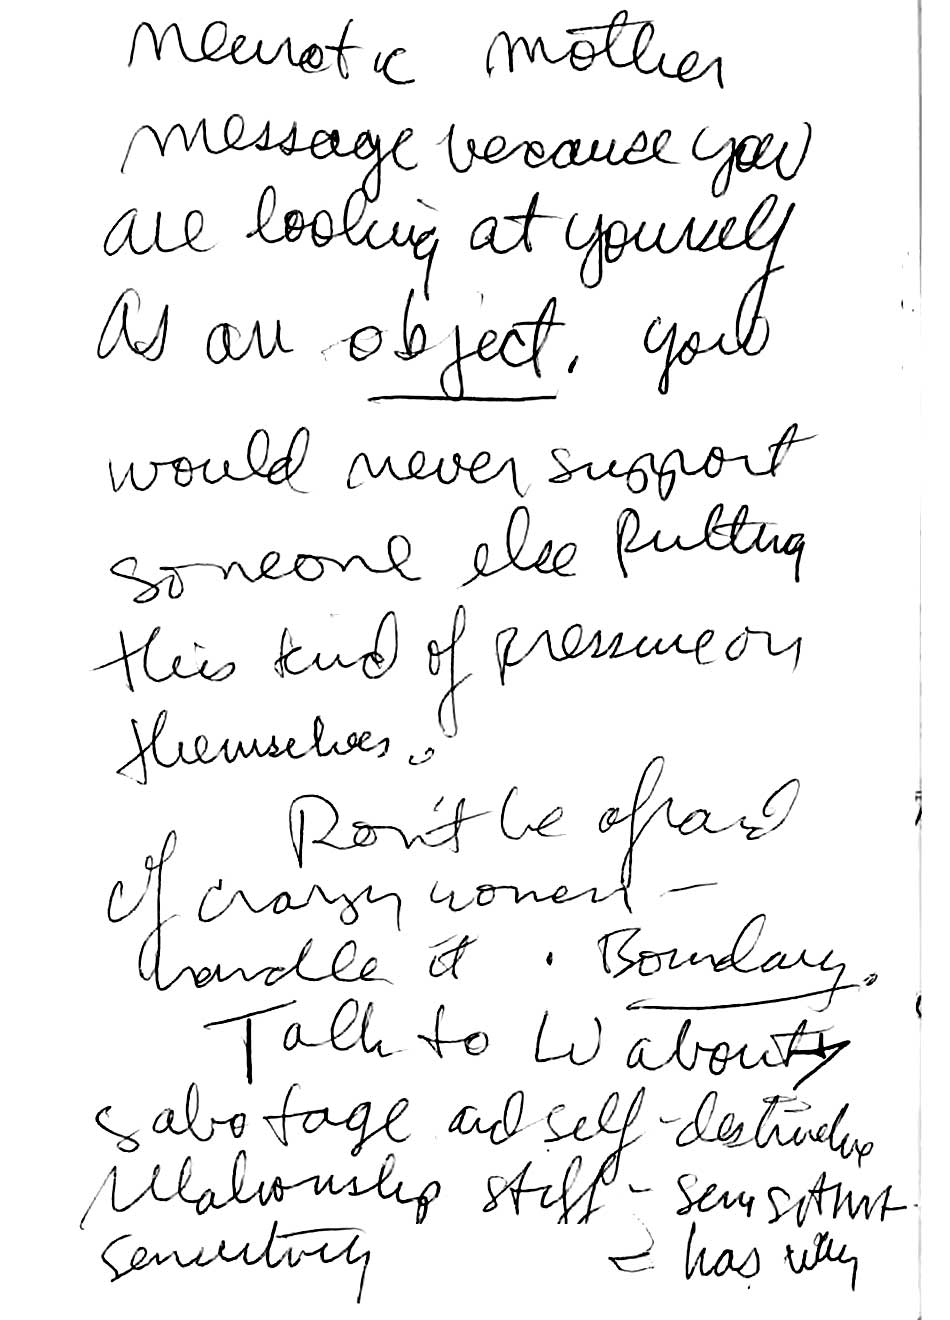 neurotic mother
message because you
are looking at yourself
as an object. you
would never support
someone else putting
this kind of pressure on
themselves.
Don't be afraid
of crazy women —
handle it . Boundary.
Talk to W about
sabotage and self-destructive
relationship stuff -
sensitivity has